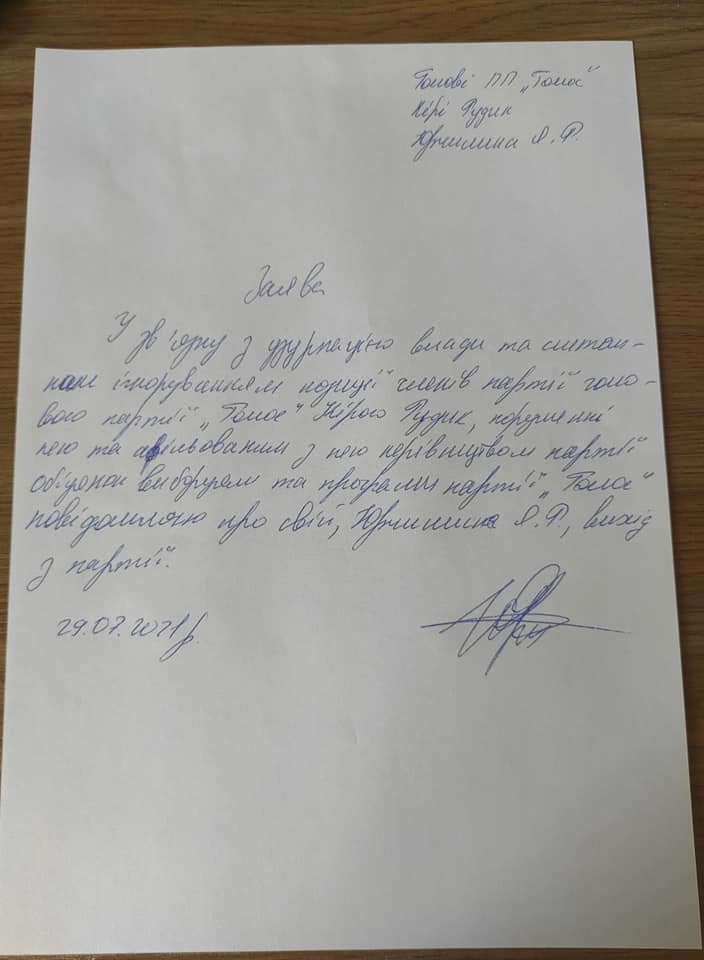 Голові ПП „Голос"
Кірі Рудик
Юрчишина Я. Р.
Заява
У зв'язку з узурпацією влади та систем-
ним ігноруванням позиції членів партії голо-
вою партії „Голос" Кірою Рудик, порушенні
нею та афільованим з нею керівництвом партії
обіцянок виборцям та програми партії „Голос"
повідомляю про свій, Юрчишина Я.Р., вихід
з партії.
29.07.2021р.